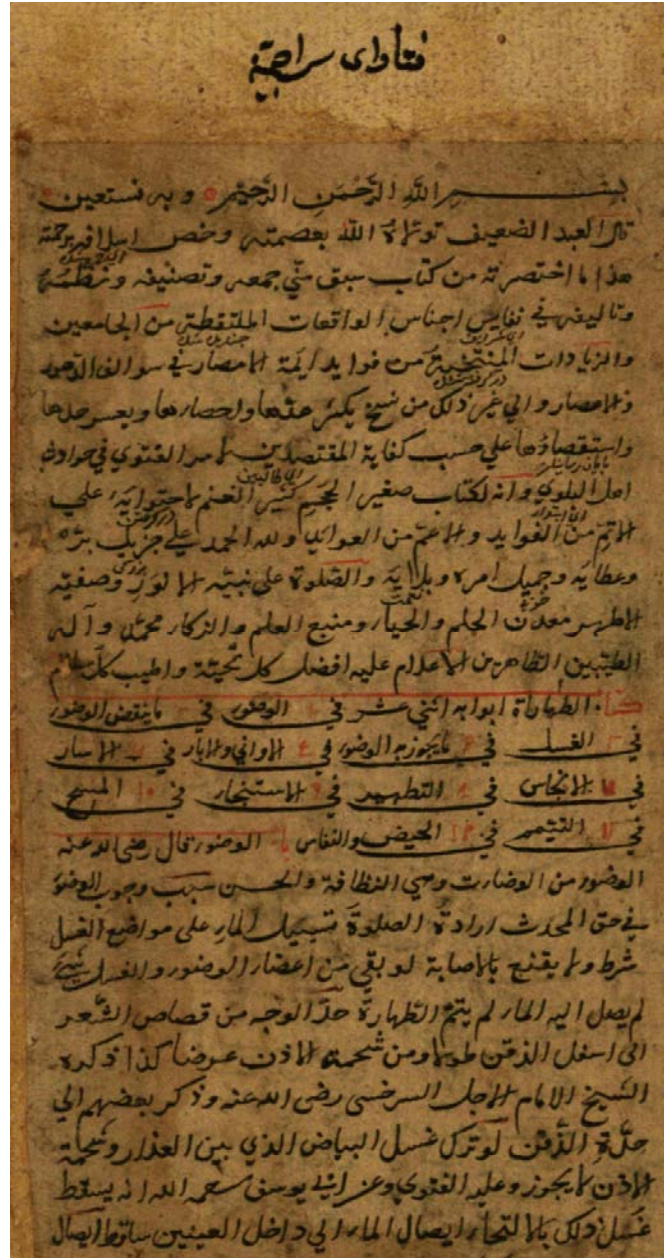 فتاوای سراجیة
بسم الله الرحمن الرحیم وبه نستعین
قال العبد الضعیف تولاه الله بعصمته وخص اسلافه برحمته
هذا ما اختصرته من كتاب سبق منّي جمعه وتصنیفه ونظمه
وتالیفه في نفایس اجناس الواقعات الملتقطة من الجامعین
والزیادات المنتخبة من فواید ایمة الامصار في سوالف الدهور
والاعصار والي غیر ذلك من نسخ یكثر عدّها واحصارها ویعسر حدها
واستقصاؤها علي حسب كفایة المقتصدین لامر الفتوي في حوادث
اهل البلوي وانه لكتاب صغیر الحجم كثیر الغنم لاحتوایه علي
الاتمّ من الفواید والاعمّ من العواید ولله الحمد علي جزیل برّه
وعطایه وجمیل امره وبلایه والصّلوة علی نبیّه الا وصفیّه
الاطهر معدن الحلم والحیار ومنبع العلم والذكار محمّد وآله
الطیّبین الظاهرین الاعلام علیه افضل كل تحیّة واطیب كلّ سلام
كتاب الطهارة ابوابه اثني عشر في ١ الوضور في ٢ ماینقض الوضور
في ٣ الغسل في ٤ مایجوز به الوضور في الاواني والابار في الاسار
في الانجاس في ٨ التطهیر في ٩ الاستنجار في ١٠ المسح
في ١١ التیمم في ١٢ الحیض والنفاس باب الوضور قال رضی الله عنه
الوضور من الوضارت وهي النظافة والحسن سبب وجوب الوضو
في حق المحدث ارادة الصلوة تسییل المار علی مواضع الغسل
شرط ولا یقنع بالاصابة لو بقي من اعضار الوضور والغسل شيء
لم یصل الیه المار لم یتمّ الطهارة حدّ الوجه من قصاص الشعر
الی اسفل الذقن طولا ومن شحمة الاذن عرضا كذا ذكره
الشیخ الامام الاجل السرخسی رضی الله عنه وذكر بعضهم الي
حدّة الذقن لو ترك غسل البیاض الذي بین العذار وشحمة
الاذن لا یجوز وعلیه الفتوي وعن ابي یوسف رحمه الله انه یسقط
غسل ذلك بالالتحار ایصال المار الي داخل العینین ساقط ایصال